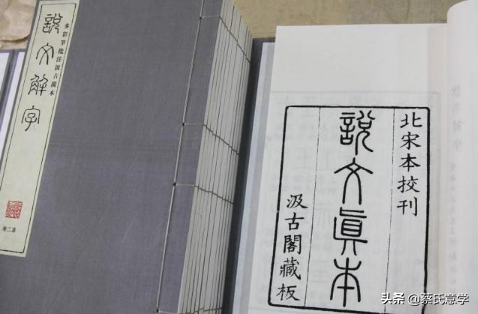 說文解字
北宋本校刊
說文眞本
汲古閣藏板
头条 @蔡氏意学